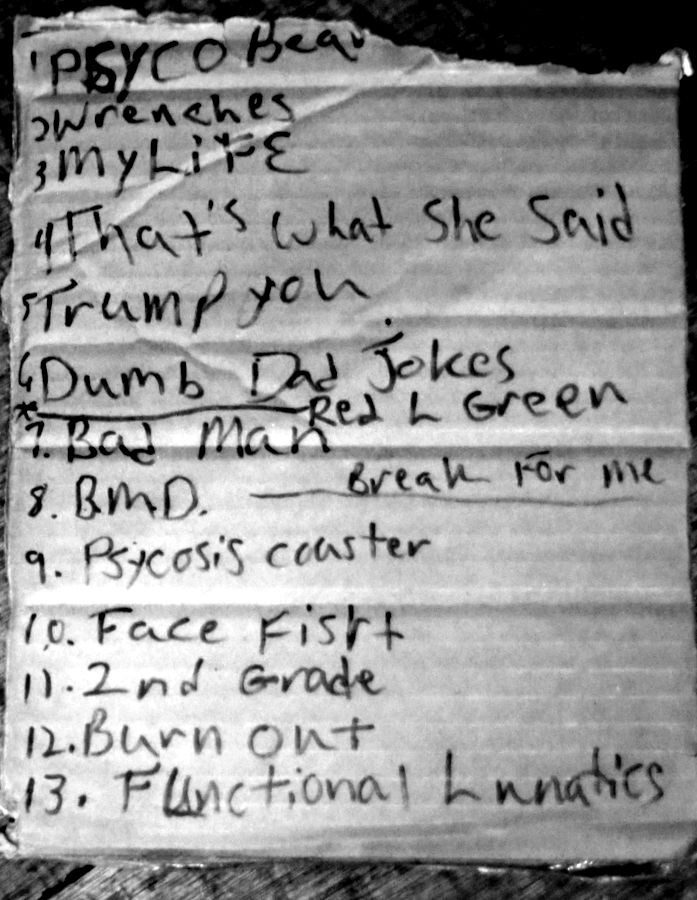 1 PSYCO Bear
2 Wrenches
3 MY LiFE
4 That's what She Said
5 Trump you
6 Dumb Dad Jokes
* Red L Green
7. Bad Man
8. BMD. — Break For me
9. Psycosis coaster
10. Face Fisht
11. 2nd Grade
12. Burn out
13. Functional Lunatics